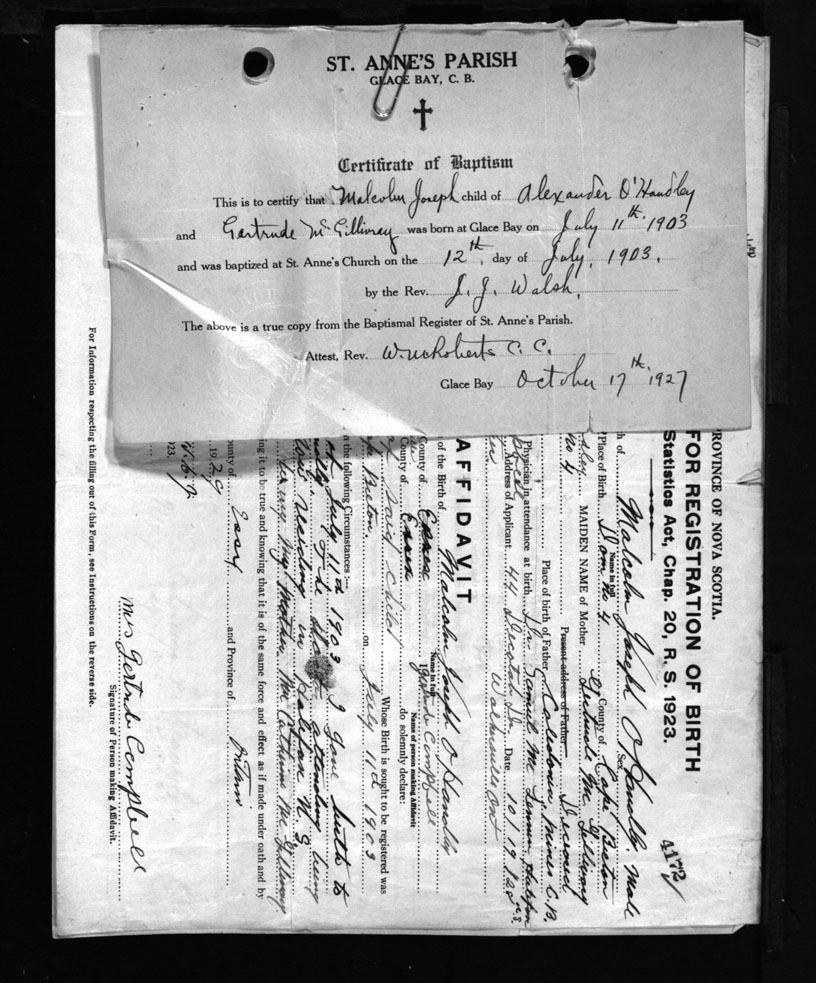 ST. ANNE'S PARISH
GLACE BAY, C. B.
Certificate of Baptism
This is to certify that Malcolm Joseph child of Alexander O'Handley
and Gertrude McGillivray was born at Glace Bay on July 11th. 1903
and was baptized at St. Anne's Church on the 12th. day of July, 1903.
by the Rev. J. J. Walsh.
The above is a true copy from the Baptismal Register of St. Anne's Parish.
Attest, Rev. C. C.
Glace Bay October 17th. 1927
PROVINCE OF NOVA SCOTIA.
FOR REGISTRATION OF BIRTH
Statistics Act, Chap. 20, R. S. 1923.
4172
Malcolm Joseph O'Handley. Male
Name in full Sex
Place of Birth Dom. No 4 County of Cape Breton
No 4 MAIDEN NAME of Mother Gertrude Mc Gillivray
Present address of Father Deceased
Place of birth of Father Caledonia Mines C.B.
Physician in attendance at birth Dr.
Address of Applicant 44 Date 10/19
Walkerville Ont
AFFIDAVIT
of the Birth of Malcolm Joseph O'Handley
Name in full
County of Essex Gertrude Campbell
Name of person making Affidavit
County of Essex do solemnly declare:
of said child Whose Birth is sought to be registered was
Breton. on July 11th 1903
in the following Circumstances:—
July 11th 1903 I gave birth to
attending being
now residing in Halifax N. S.
being my Mother Mc Gillivray.
ing it to be true and knowing that it is of the same force and effect as if made under oath and by
ounty of Essex and Province of Ontario
Mrs Gertrude Campbell
Signature of Person making Affidavit.
For Information respecting the filling out of this Form, see Instructions on the reverse side.